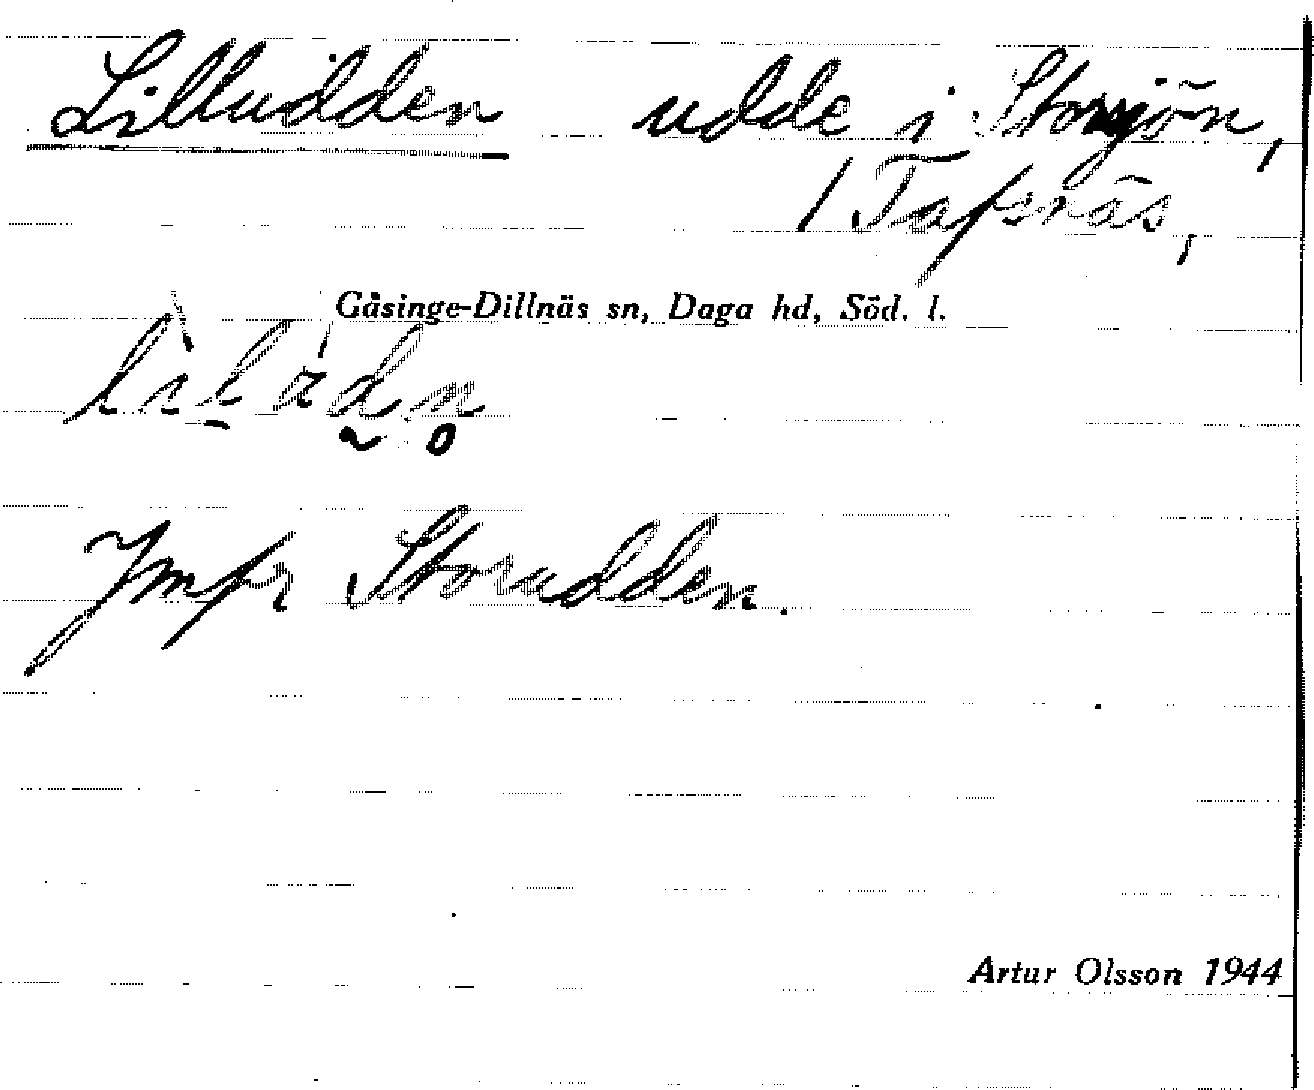 Lilludden udde i Storsjön,
/Tapsnäs,
Gåsinge-Dillnäs sn, Daga hd, Söd. l.
Jmfr Storudden.
Artur Olsson 1944